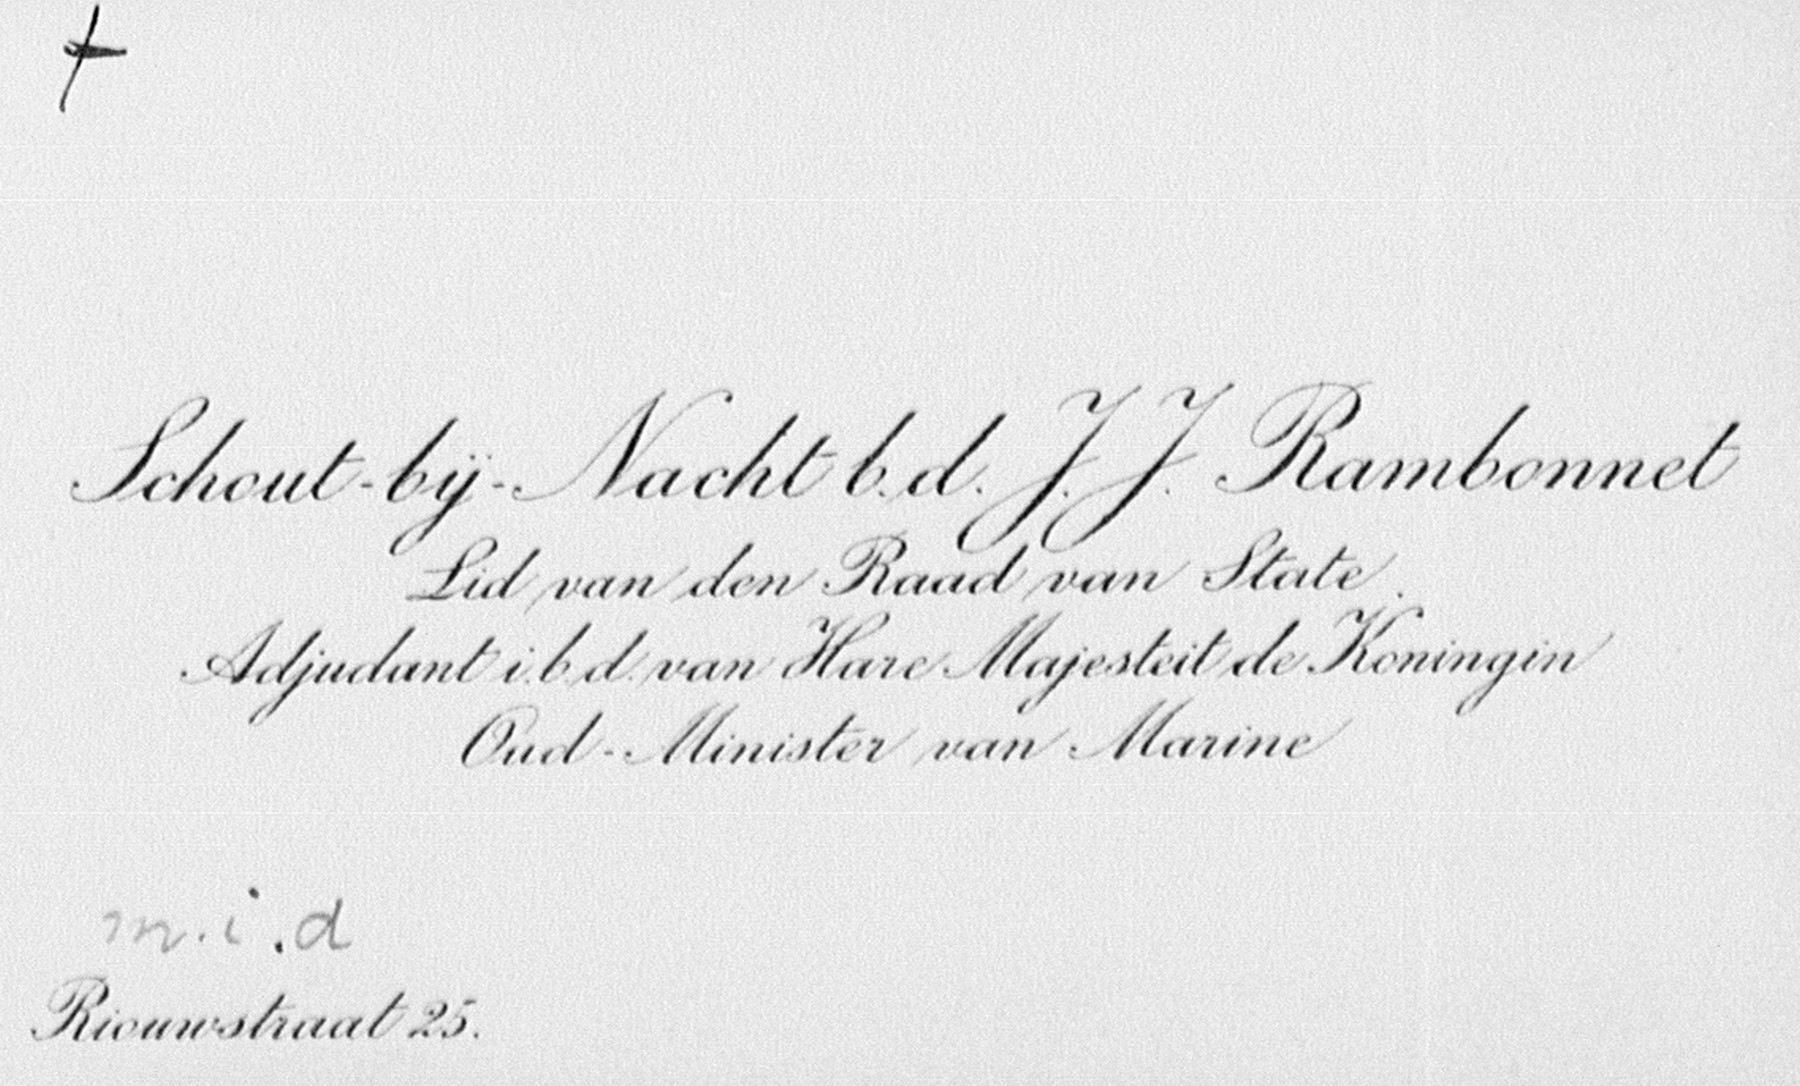 Schout-bij-Nacht b.d. J.J. Rambonnet
Lid van den Raad van State.
Adjudant i.b.d. van Hare Majesteit de Koningin
Oud-Minister van Marine
m.i.d
Riouwstraat 25.